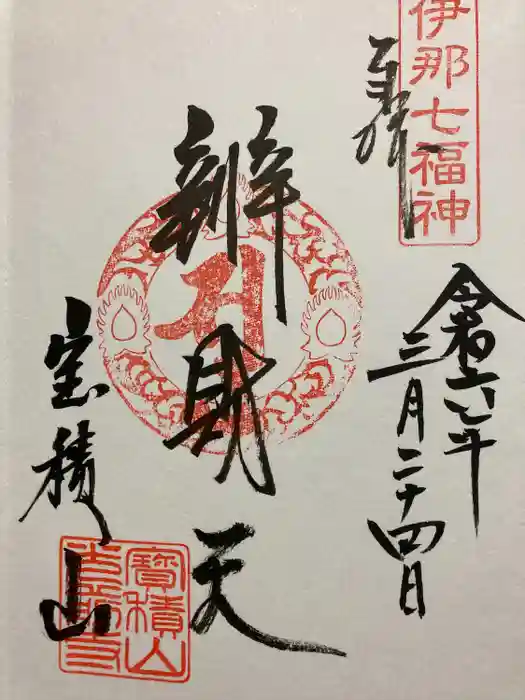 伊那七福神
奉拝
令和六年
三月二十四日
辨財天
宝積山
寶積山
光前寺